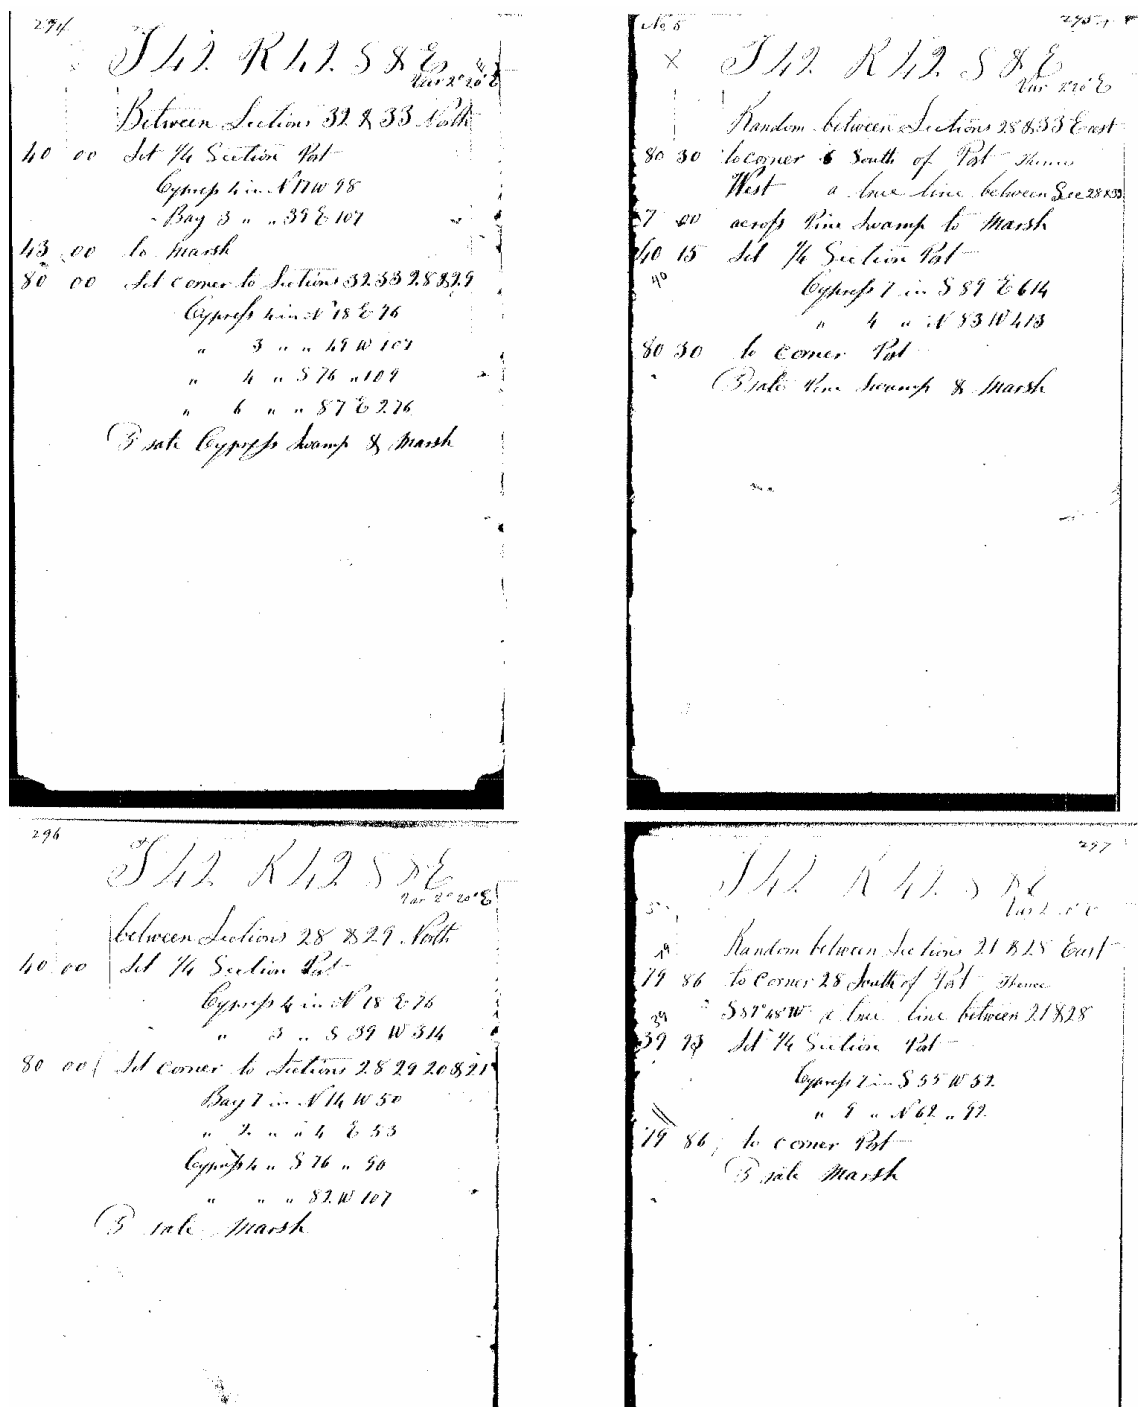 294
T 42 R 42 S & E
Var 2° 20' E
Between Sections 32 & 33 North
40 00 Set 1/4 Section Post
Cypress 4 in N 17 W 98
Bay 3 " " 39 E 107
43 00 to Marsh
80 00 Set corner to Sections 32 33 28 & 29
Cypress 4 in N 18 E 76
" 3 " " 49 W 107
" 4 " S 76 " 109
" 6 " " 87 E 276
3 rate Cypress Swamp & Marsh
No 5
295
X T 42 R 42 S & E
Var 2 20' E
Random between Sections 28 & 33 East
80 30 to corner 6 South of Post Thence
West a true line between Sec 28 & 33
7 00 across Pine Swamp to Marsh
40 15 Set 1/4 Section Post
40
Cypress 7 in S 89 E 614
" 4 " N 83 W 413
80 30 to corner Post
3 rate Pine Swamp & Marsh
296
T 42 R 42 S & E
Var 2° 20' E
between Sections 28 & 29 North
40 00 Set 1/4 Section Post
Cypress 4 in N 18 E 76
" 3 " S 39 W 314
80 00 Set corner to Sections 28 29 20 & 21
Bay 7 in N 14 W 50
" 2 " " 4 E 53
Cypress 4 " S 76 " 90
" " " 82 W 107
3 rate Marsh
297
T 42 R 42 S & E
Var 2
Random between Sections 21 & 28 East
79 86 to corner 28 South of Post Thence
S 89° 48' W a true line between 21 & 28
39 93 Set 1/4 Section Post
Cypress 7 in S 55 W 52
" 9 " N 62 " 92
79 86 to corner Post
3 rate Marsh